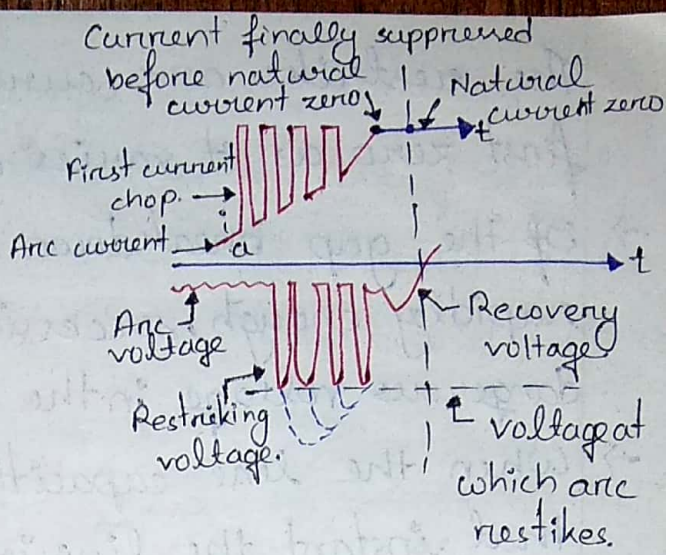 Current finally suppressed
before natural
current zero
Natural
current zero
t
First current
chop.
i
Arc current
a
t
Arc
voltage
Recovery
voltage
Restricking
voltage.
voltage at
which arc
restikes.